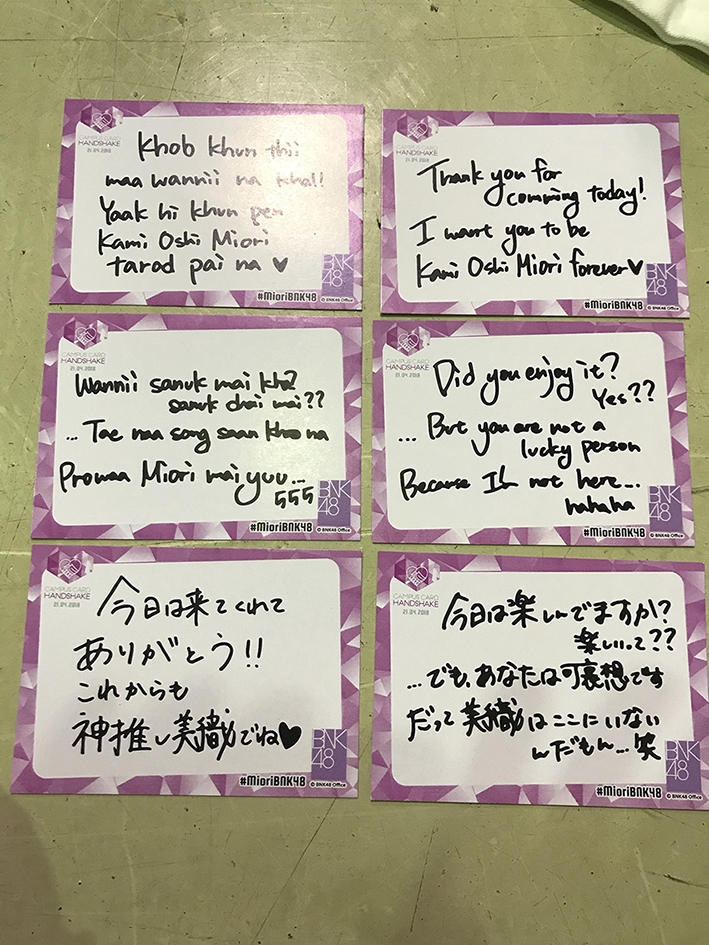 CAMPUS CARD
HANDSHAKE
21.04.2018
Khob khun thii
maa wannii na kha!
Yaak hi khun pen
Kami Oshi Miori
tarod pai na ♥
BNK
48
#MioriBNK48 © BNK48 Office
CAMPUS CARD
HANDSHAKE
21.04.2018
Thank you for
comming today!
I want you to be
Kami Oshi Miori forever♥
BNK
48
#MioriBNK48 © BNK48 Office
CAMPUS CARD
HANDSHAKE
21.04.2018
Wannii sanuk mai kha?
sanuk chai mai??
... Tae naa song saan na
Prowaa Miori mai yuu...
555
BNK
48
#MioriBNK48 © BNK48 Office
CAMPUS CARD
HANDSHAKE
21.04.2018
Did you enjoy it?
Yes??
... But you are not a
lucky person
Because I'm not here...
hahaha
BNK
48
#MioriBNK48 © BNK48 Office
CAMPUS CARD
HANDSHAKE
21.04.2018
今日は来てくれて
ありがとう!!
これからも
神推し美織でね♥
BNK
48
#MioriBNK48 © BNK48 Office
CAMPUS CARD
HANDSHAKE
21.04.2018
今日は楽しんでますか?
楽しいって??
...でも、あなたは可哀想です
だって美織はここにいない
んだもん...笑
BNK
48
#MioriBNK48 © BNK48 Office